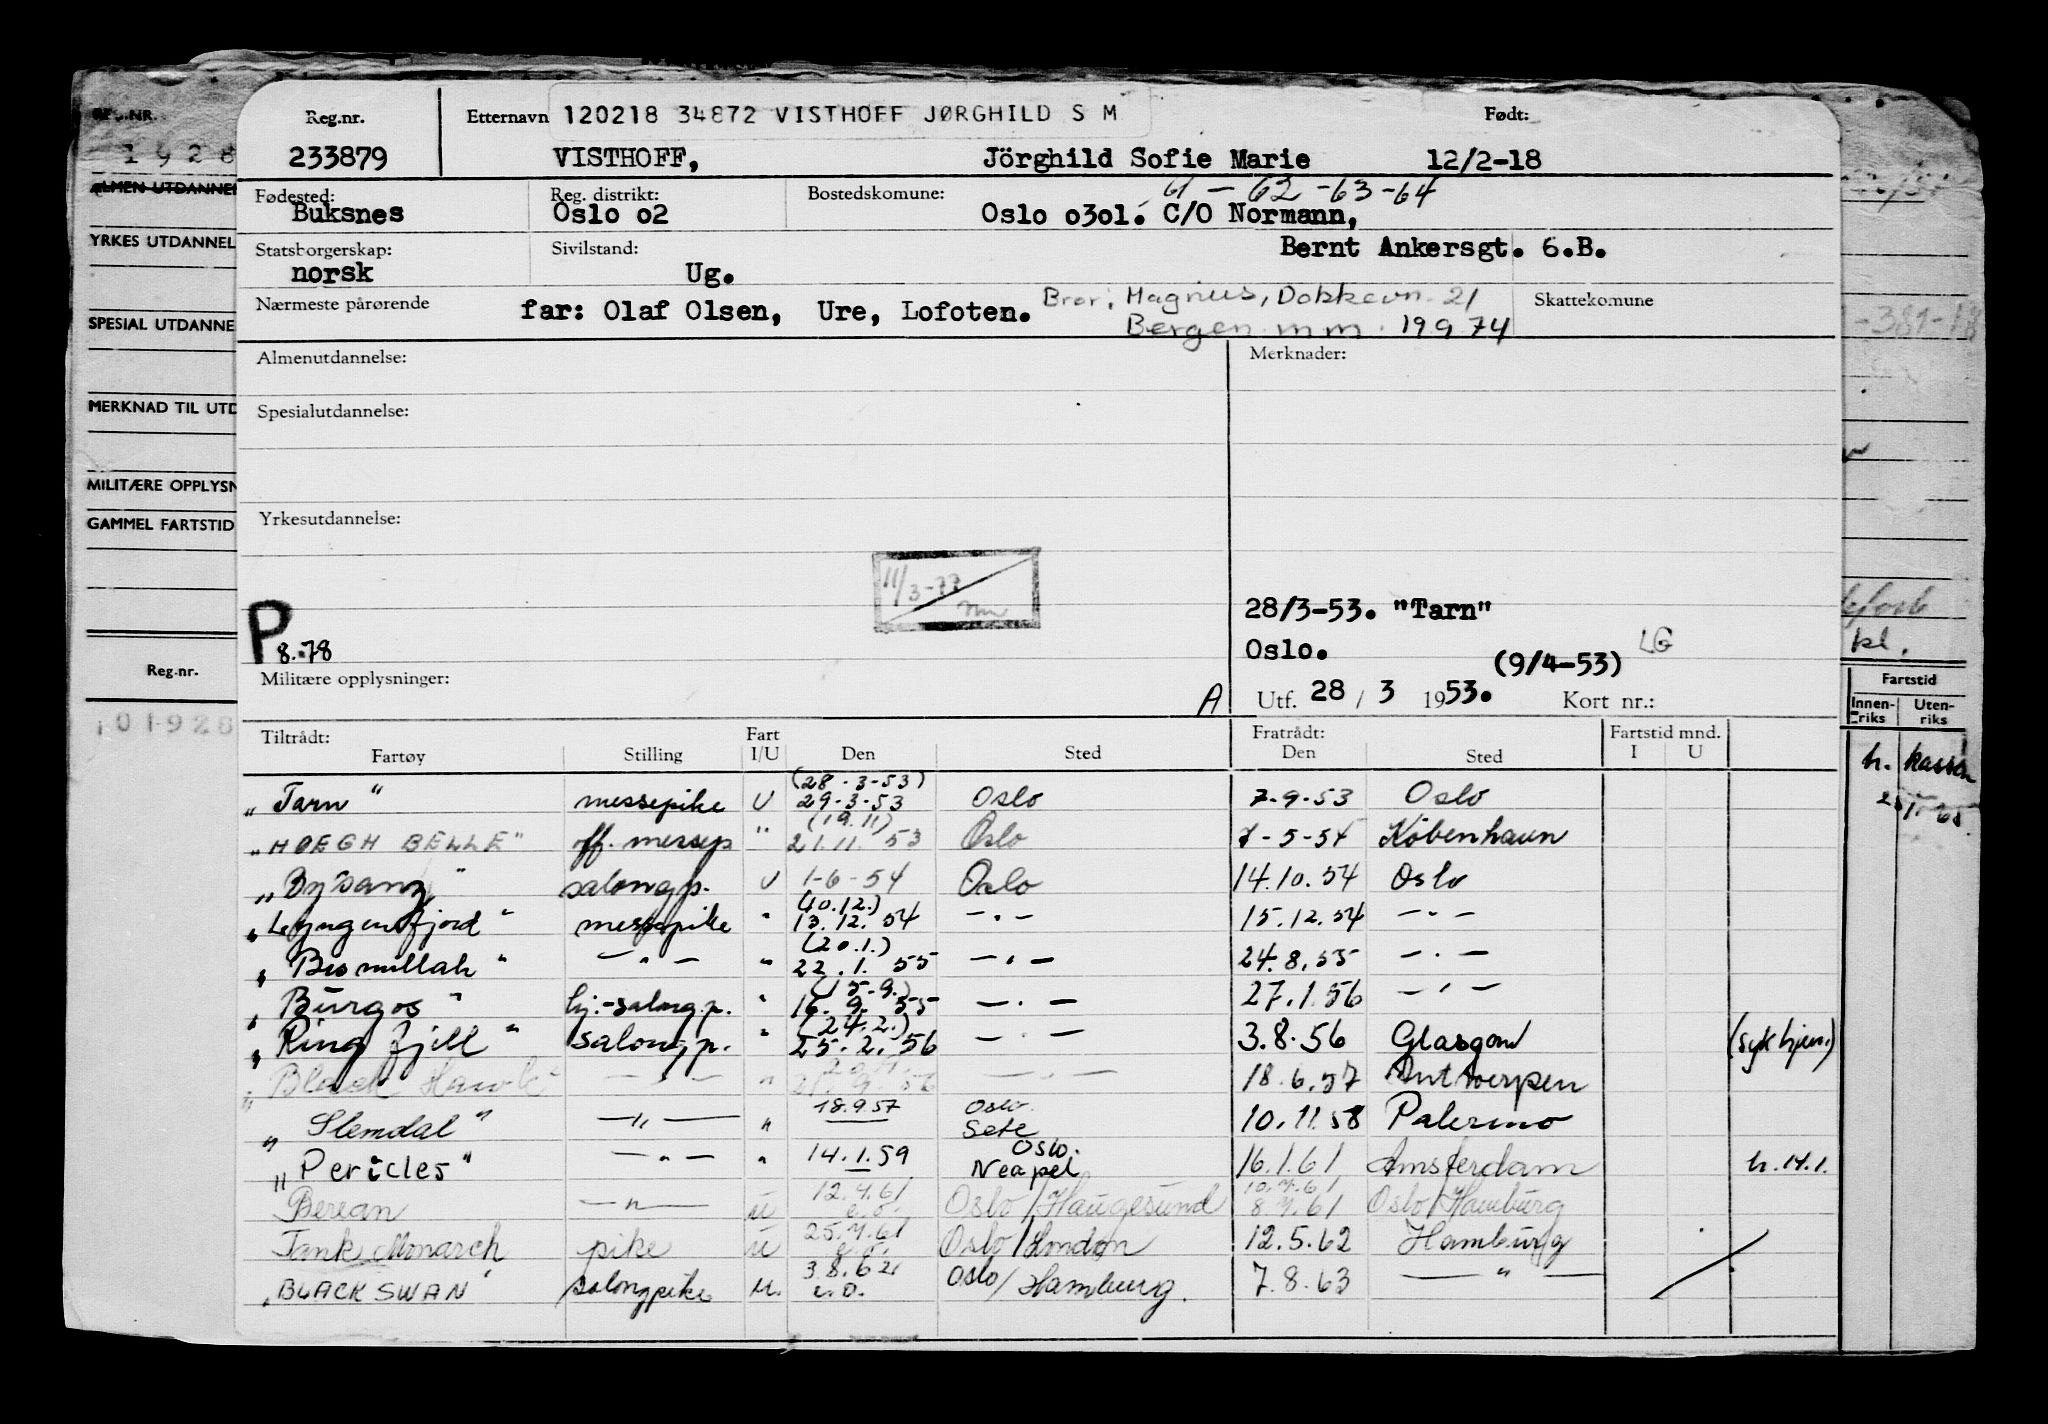 Reg.nr. Etternavn 120218 34872 VISTHOFF JØRGHILD S M Født:
233879 VISTHOFF, Jörghild Sofie Marie 12/2-18
Fødested: Reg. distrikt: Bostedskomune: 61 - 62 - 63 - 64
Buksnes Oslo o2 Oslo o3ol. C/O Normann,
Statsborgerskap: Sivilstand: Bernt Ankersgt. 6.B.
norsk Ug.
Nærmeste pårørende far: Olaf Olsen, Ure, Lofoten. Bror: Magnus, 21 Skattekomune
Bergen m m. 19 9 74
Almenutdannelse: Merknader:
Spesialutdannelse:
Yrkesutdannelse:
11/3-77
28/3-53. "Tarn"
P 8.-78 Oslo. (9/4-53) LG
Militære opplysninger: A Utf. 28 / 3 1953. Kort nr.:
Tiltrådt: Fart Fratrådt: Fartstid mnd.
Fartøy Stilling I/U Den Sted Den Sted I U
(28-3-53)
"Tarn" messepike U 29-3-53 Oslo 7-9-53 Oslo
(19.11)
"HØEGH BELLE" off. messep " 21.11. 53 Oslo 7-5-54 København
"Bysanz" salongp. U 1-6-54 Oslo 14.10.54 Oslo
(10.12.)
"Lyngenfjord" messepike " 13.12.54 - " - 15.12.54 - " -
(20.1.)
"Bismillah" - " - " 22.1.55 - " - 24.8.55 - " -
(15.9.)
"Burgos" hj.-salongp. " 16.9.55 - " - 27.1.56 - " -
(24.2.)
"Ringfjell" salongp. " 25.2.56 - " - 3.8.56 Glasgow (sykhjem.)
"Black Hawk" - " - " 21.9.56 - " - 18.6.57 Antwerpen
"Slemdal" - " - " 18.9.57 Oslo. Sete 10.11.58 Palermo
"Pericles" - " - " 14.1.59 Oslo. Neapel 16.1.61 Amsterdam h.14.1.
Berean - " - u 12.4.61 Oslo/Haugesund 8.7.61 Oslo/Hamburg
Tank Monarch pike u 25.7.61 Oslo/London 12.5.62 Hamburg
"BLACK SWAN" salongpike u. 3.8.62 Oslo/Hamburg. 7.8.63 - " -
REG.NR.
1928
ALMEN UTDANNEL
YRKES UTDANNEL
SPESIAL UTDANNE
MERKNAD TIL UTD
MILITÆRE OPPLYSN
GAMMEL FARTSTID
Reg.nr.
101928
kl.
Fartstid
Innen-riks Uten-riks
h. kassen